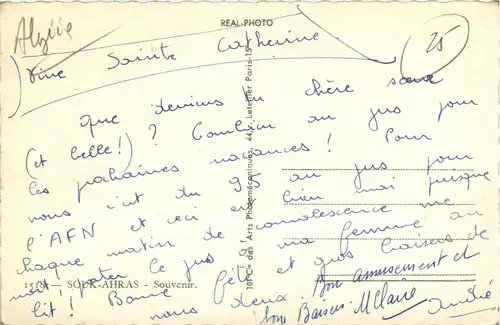 REAL-PHOTO
Algérie
25
Vive Sainte Catherine
Que deviens tu chère sœur
(et belle!) ? Combien au jus pour
les prochaines vacances! Pour
nous c'est du 99 au jus pour
l'AFN et ceci est bien moi puisque
chaque matin de convalescence me
voit jeter le jus à ma femme au
lit! Bonne fête et gros baisers de
nous deux
Bon amusement et
bons Baisers. M Claire
André
"CAP" des Arts Photomécaniques, 44, r. Letellier Paris-15
SOUK-AHRAS - Souvenir.